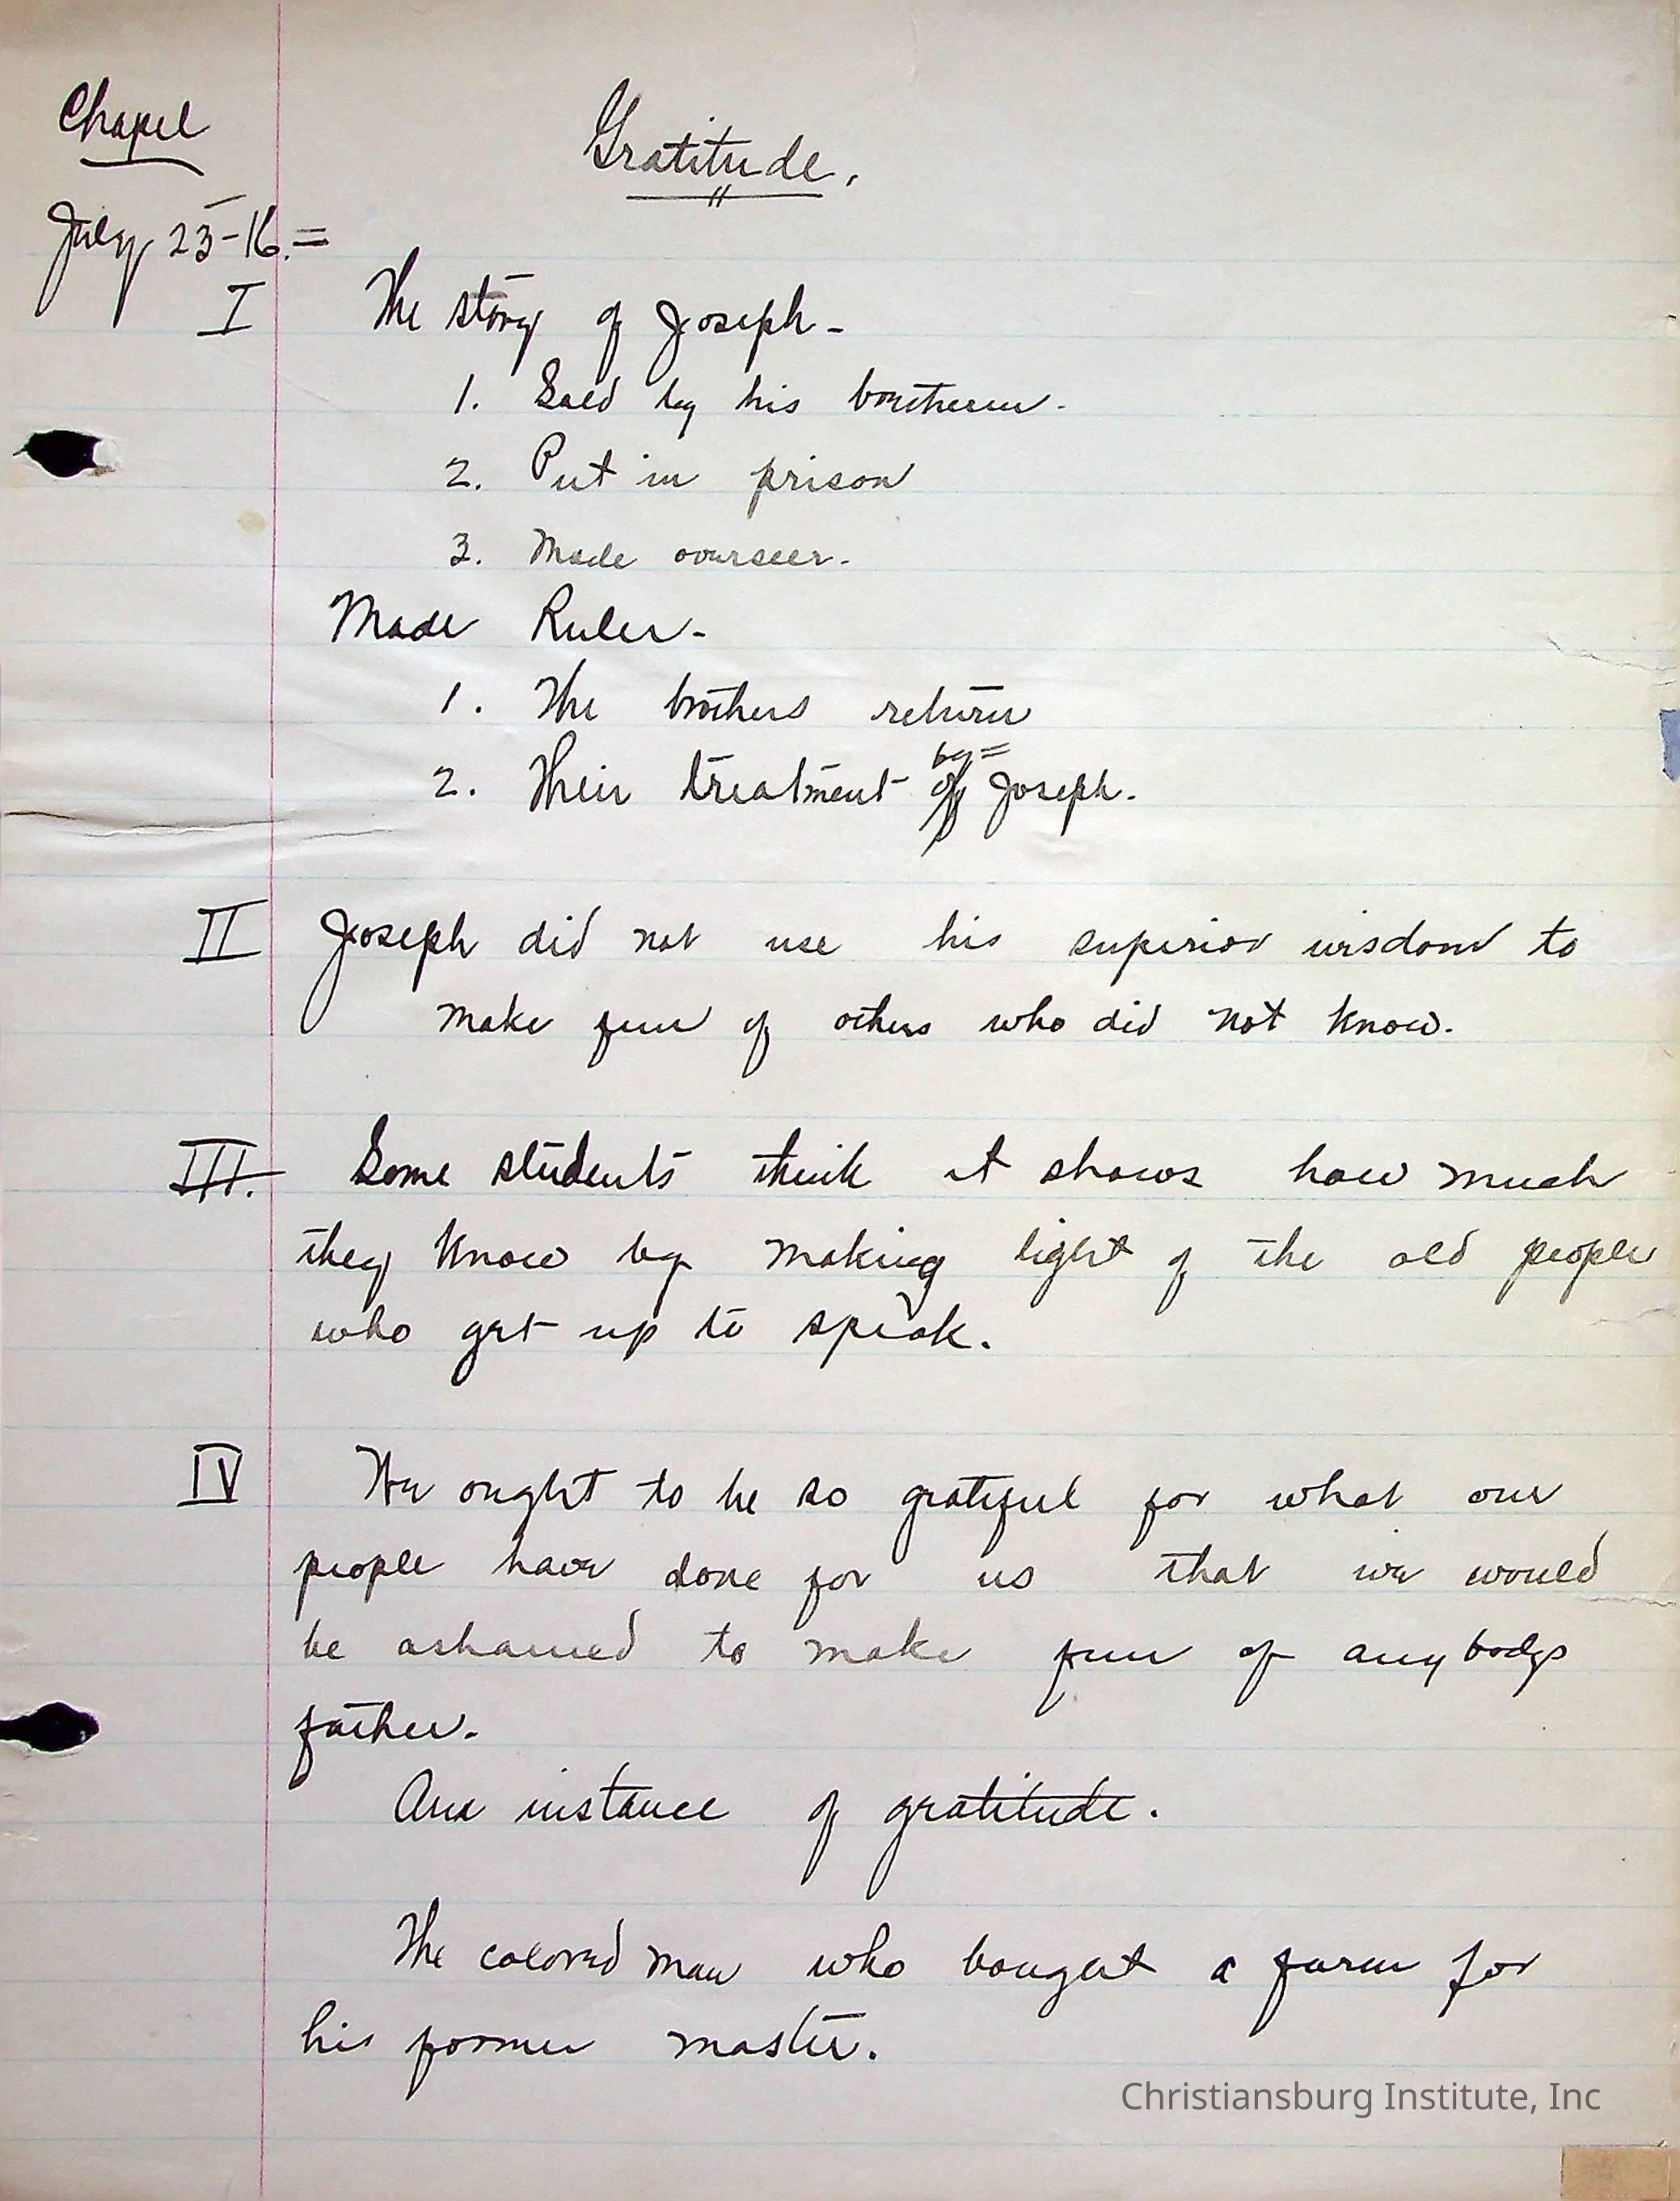 Chapel
Gratitude.
July 23-16.=
I The story of Joseph-
1. Sold by his bretheren.
2. Put in prison
3. Made overseer.
Made Ruler-
1. The brothers return
by=
2. Their treatment of Joseph.
II Joseph did not use his superior wisdom to
make fun of others who did not know.
III. Some students think it shows how much
they know by making light of the old people
who get up to speak.
IV We ought to be so grateful for what our
people have done for us that we would
be ashamed to make fun of any bodys
father.
One instance of gratitude.
The colored man who bought a farm for
his former master.
Christiansburg Institute, Inc